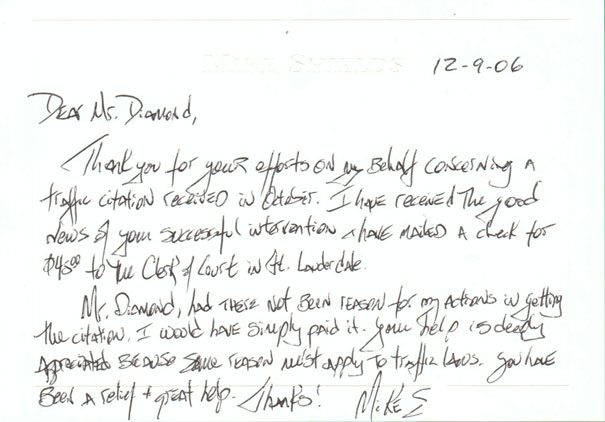 MIKE SHIELDS
12-9-06
Dear Mr. Diamond,
Thank you for your efforts on my behalf concerning a
traffic citation received in October. I have received the good
news of your successful intervention & have mailed a check for
$45.00 to the Clerk of Court in Ft. Lauderdale.
Mr. Diamond, had there not been reason for my actions in getting
the citation, I would have simply paid it. Your help is deeply
appreciated because some reason must apply to traffic laws. You have
been a relief + great help. Thanks! Mike S